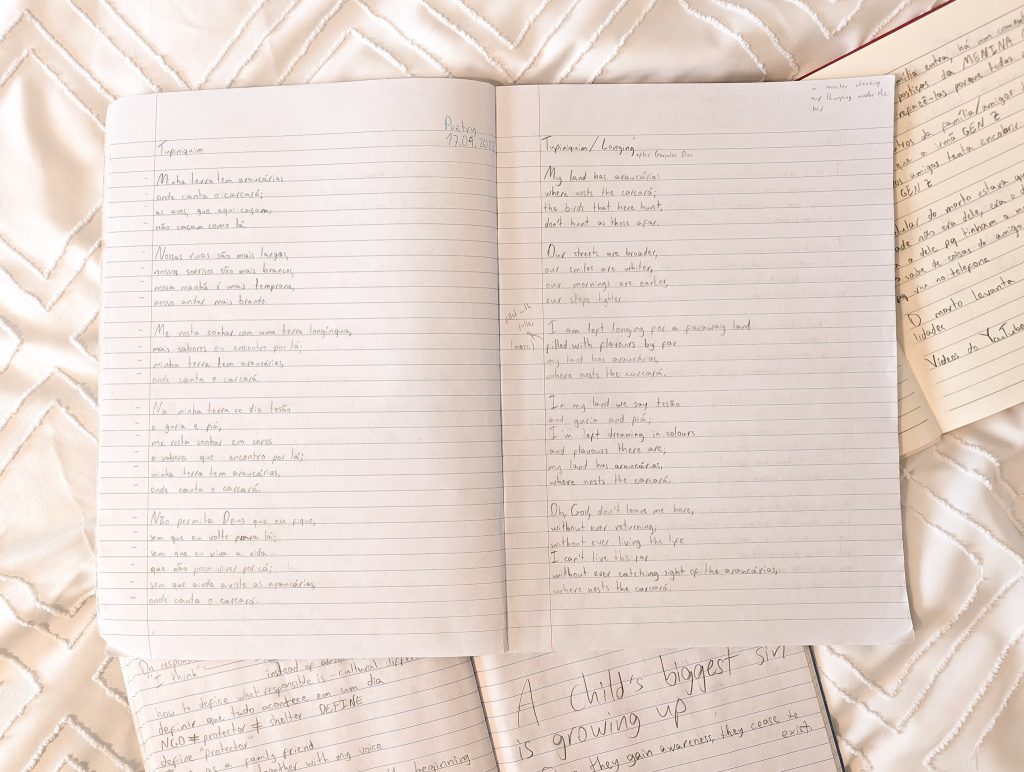 Poetry
17.09.2022
Tupiniquim
Minha terra tem araucárias
onde canta o carcará;
as aves, que aqui caçam,
não caçam como lá.
Nossas ruas são mais largas,
nossos sorrisos são mais brancos,
nossa manhã é mais temprana,
nosso andar mais brando.
Me resta sonhar com uma terra longínqua,
mais sabores eu encontro por lá;
minha terra tem araucárias,
onde canta o carcará.
Na minha terra se diz tesão
e guria e piá;
me resta sonhar em cores
e sabores que encontro por lá;
minha terra tem araucárias,
onde canta o carcará.
Não permita Deus que eu fique,
sem que eu volte para lá;
sem que eu viva a vida
que não posso viver por cá;
sem que ainda aviste as araucárias,
onde canta o carcará.
- monster creaking
and thumping under the
bed
Tupiniquim / Longing after Gonçalves Dias
My land has araucárias
where nests the carcará;
the birds that here hunt,
don't hunt as those afar.
Our streets are broader,
our smiles are whiter,
our mornings are earlier,
our steps lighter.
I am left longing for a faraway land
filled with flavours by far
my land has araucárias,
where nests the carcará.
In my land we say tesão
and guria and piá;
I'm left dreaming in colours
and flavours there are;
my land has araucárias,
where nests the carcará.
Oh, God, don't leave me here,
without ever returning,
without ever living the life
I can't live this far
without ever catching sight of the araucárias,
where nests the carcará.
entra, há um
da MENINA
porque todas
da família/amigos
que a irmã GEN Z
amigos tenta encobrir
GEN Z
do morto estava
não era dele, era o
a dele pq tinham a
sabe de coisas do amigo
viu no telefone
O morto levanta
lidades
Videos do YouTube
"I think" instead of
how to define what responsible is - cultural
definir que tudo acontece em um dia
NGO ≠ protector ≠ shelter DEFINE
define "protector"
as a family friend
together with my voice
beginning
A child's biggest sin
is growing up
they gain awareness, they cease to
exist.